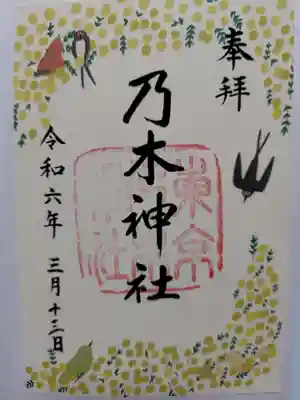 奉拝
乃木神社
令和六年 三月十三日